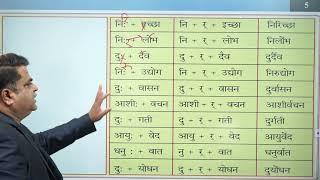 5
निः + इच्छा नि + र् + इच्छा निरिच्छा
निः + लोभ नि + र् + लोभ निर्लोभ
दुः + दैव दु + र् + दैव दुर्दैव
निः + उद्योग नि + र् + उद्योग निरुद्योग
दुः + वासन दु + र् + वासन दुर्वासन
आशीः + वचन आशी + र् + वचन आशीर्वचन
दुः + गती दु + र् + गती दुर्गती
आयुः + वेद यु + र् + वेद आयुर्वेद
धनुः + वात नु + र् + वात धनुर्वात
दुः + योधन दु + र् + योधन दुर्योधन